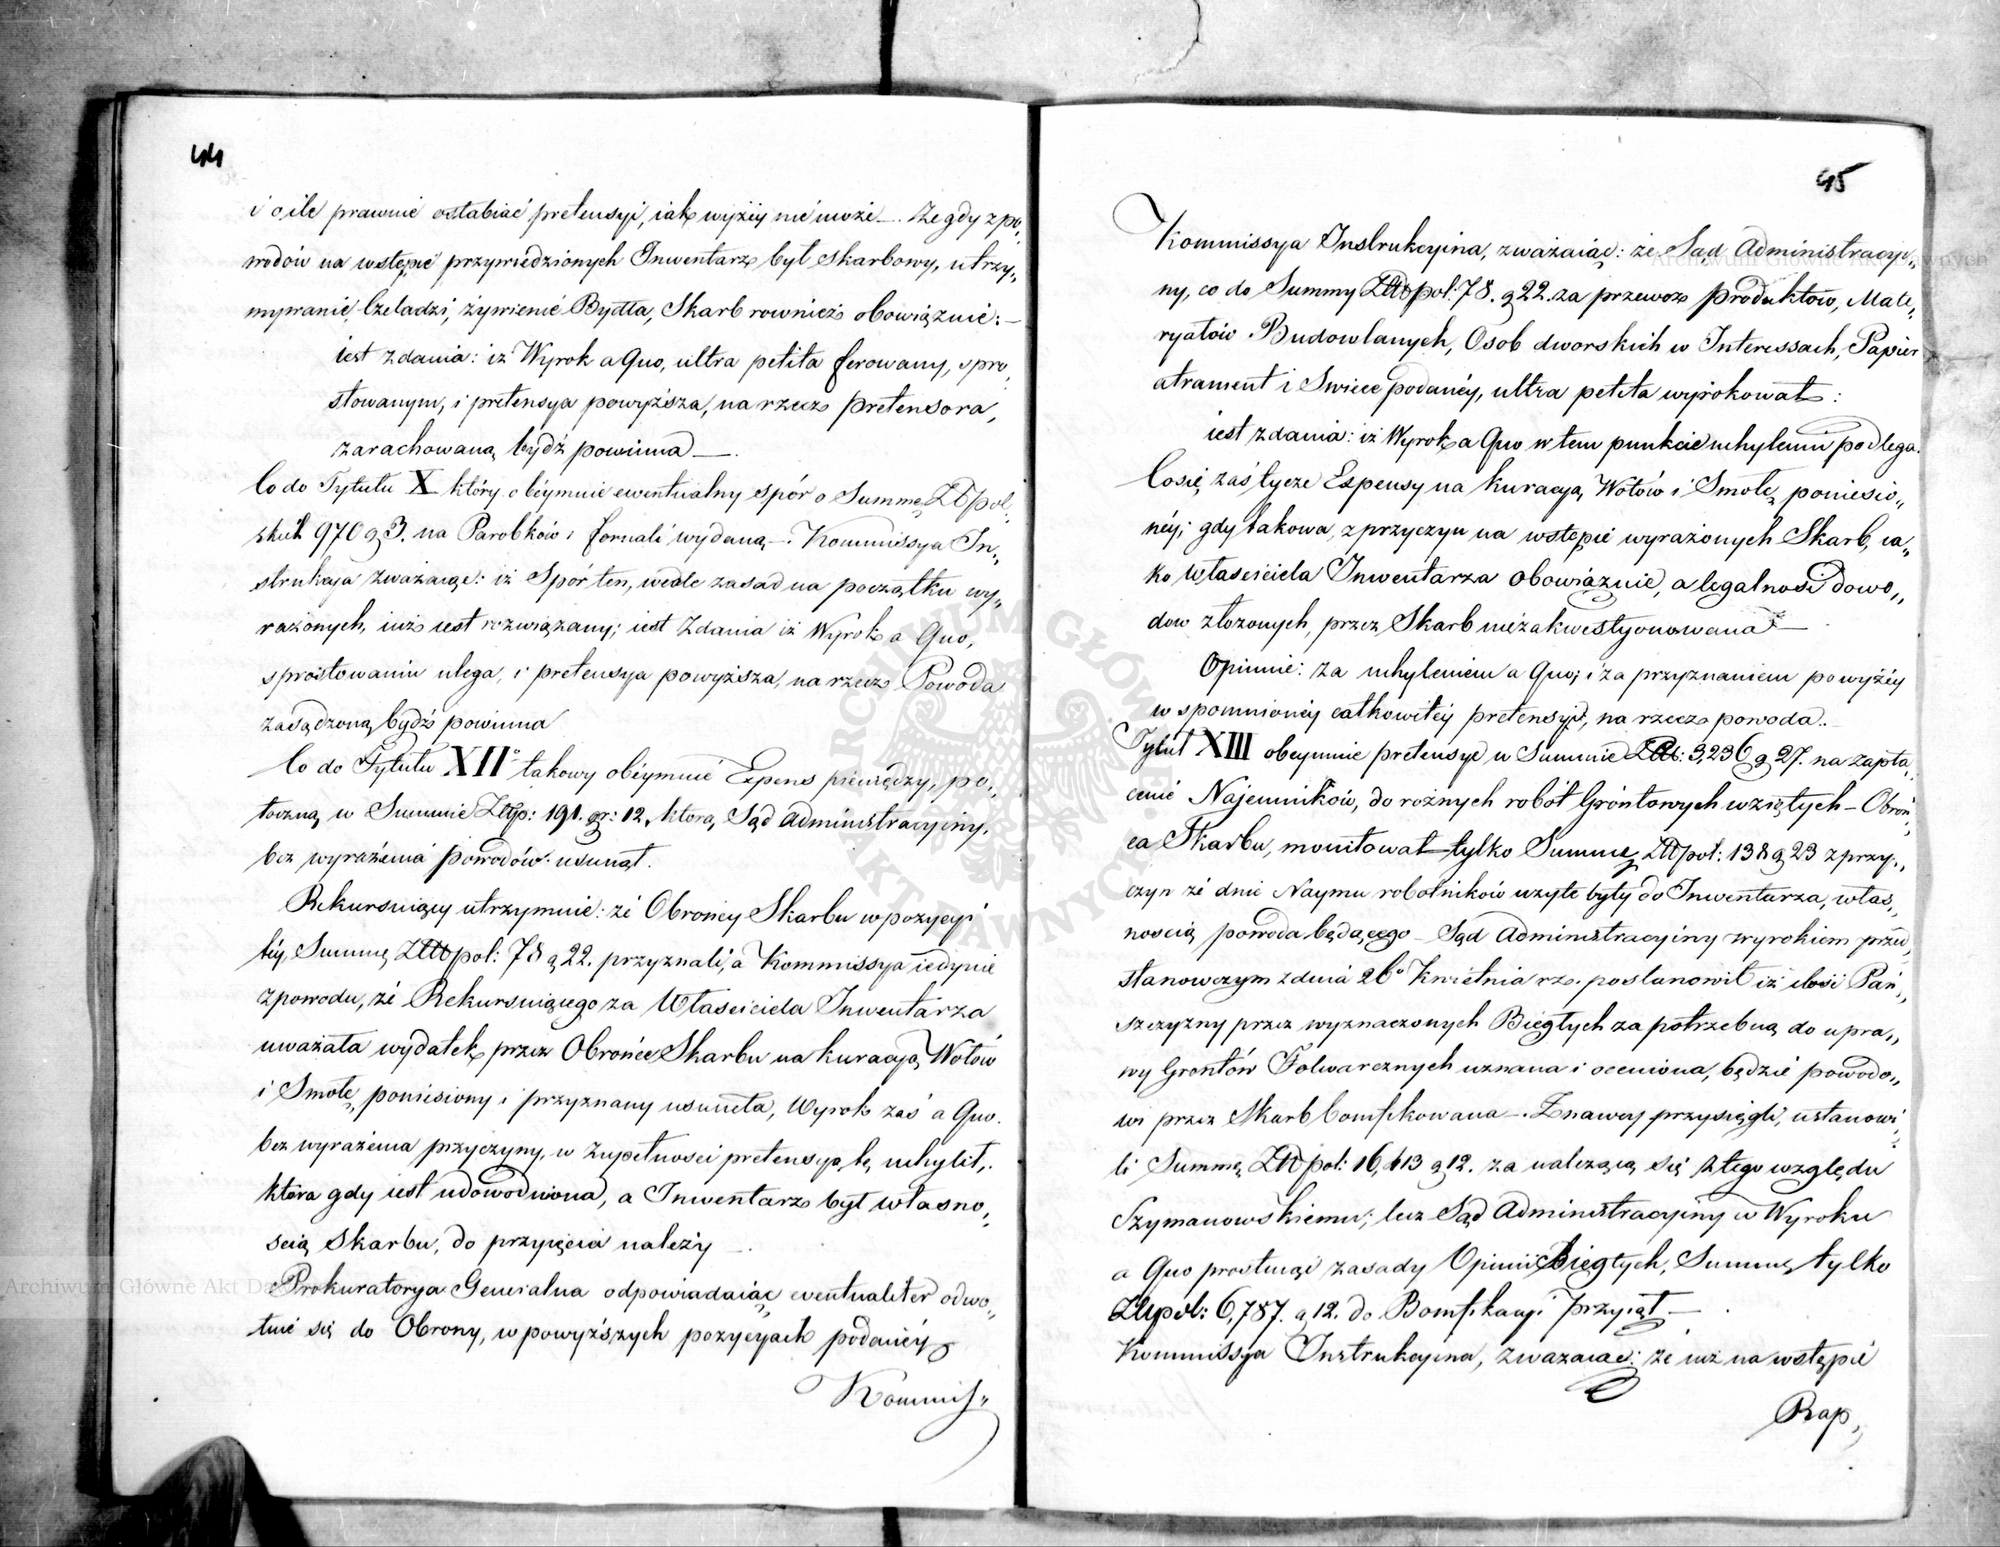 44
i o ile prawnie osłabiać pretensyi, iak wyżéy nié może —. Ze gdy z po„
wodów na wstępie przywiedzionych Inwentarz był skarbowy, utrzy„
mywanie Czeladzi, żywienie Bydła, Skarb rownież obowiązuie: —
iest zdania: iż Wyrok a Quo, ultra petita ferowany, spro„
stowanym, i pretensya powyższa, na rzecz pretensora,
zarachowaną bydź powinna —.
Co do Tytułu X który obéymuie ewentualny spór o Summę Złpol„
skich 970 g 3. na Parobków i fornali wydaną —. Kommissya In„
strukcyja zważaiąc: iż Spór ten, wedle zasad na początku wy„
rażonych, iuż iest rozwiązany; iest Zdania iż Wyrok a Quo,
sprostowaniu ulega, i pretensya powyższa, na rzecz Powoda
zasądzoną bydź powinna
Co do Tytułu XII° takowy obéymuié Expens pieniędzy, po„
toczną w Summie Złp: 191. gr: 12, którą Sąd Administracyiny,
bez wyrażenia powodów usunął.
Rekursuiący utrzymuie: zé Obrońcy Skarbu w pozycyi
téy Summę Złłpol: 78 g 22. przyznali, a Kommissya iedynie
z powodu, zé Rekursuiącego za Właściciela Inwentarza
uważała wydatek przez Obrońcę Skarbu na kuracyą Wołów
i Smołę poniesiony i przyznany usunęła, Wyrok zaś a Quo.
bez wyrażenia przyczyny, w zupełności pretensyą tę uchylił,.
która gdy iest udowodniona, a Inwentarz był własno„
ścią Skarbu, do przyięcia należy —.
Prokuratorya Generalna odpowiadaiąc eventualiter odwo„
łuié się do Obrony, w powyższych pozycyach podanéy
Kommis„
45
Kommissya Instrukcyina, zważaiąc: że Sąd Administracyi„
ny, co do Summy Złłpol: 78. g 22. za przewoz produktów, Mate„
ryałów Budowlanych, Osob dworskich w Interessach, Papier
atrament i Swiece podanéy, ultra petita wyrokował:
iest zdania: iż Wyrok a Quo w tem punkcie uchyleniu podlega.
Co się zaś tycze Expensy na kuracyą Wołów i Smołę poniesio„
néy; gdy takowa, z przyczyn na wstępie wyrażonych Skarb, ia„
ko Właściciela Inwentarza obowiązuie, a legalność dowo„
dow złożonych, przez Skarb niezakwestyonowana —.
Opinuie: za uchyleniem a Quo; i za przyznaniem powyżéy
wspomnionéy całkowitéy pretensyi, na rzecz powoda. —
Tytuł XIII obeymuie pretensye w Summie Złł: 3,236 g 27. na zapła„
cenie Najemników, do rożnych robót Gróntowych wziętych — Obroń„
ca Skarbu, monitował tylko Summę Złłpol: 138 g 23 z przy„
czyn zé dnie Naymu robotników uzyte były do Inwentarza, włas„
nością powoda będącego — Sąd Administracyiny wyrokiem przed„
stanowczym z dnia 26° Kwietnia r z. postanowił iż ilość Pań„
szczyzny przez wyznaczonych Biegłych za potrzebną do upra„
wy Grontów Folwarcznych uznana i oceniona, będzié powodo„
wi przez Skarb bonifikowana —. Znawcy przysięgli, ustanowi„
li Summę Złłpol: 16,613 g 12. za należącą się z tego względu
Szymanowskiemu; lecz Sąd Administracyiny w Wyroku
a Quo prostuiąc zasady Opinii Biegłych, Summę tylko
Złłpol: 6,787. g 12. do Bonifikacyi przyiął —.
Kommissya Instrukcyina, zważaiąc: zé iuż na wstępié
Rap„
Archiwum Główne Akt Dawnych
ARCHIWUM GŁÓWNE AKT DAWNYCH